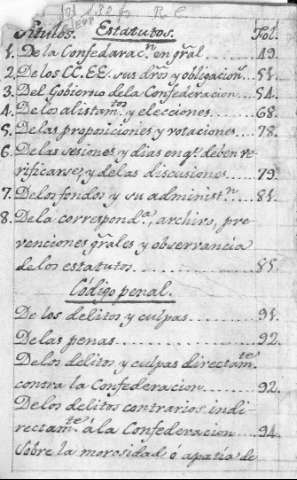 Estatutos.
Títulos. Fol.
1. De la Confedarac.n en grâl. 49.
2. De los CC. EE. sus dros y obligacion.s 51.
3. Del Gobierno dela Confederacion. 54.
4. De los alistam.tos y elecciones. 68.
5. De las proposiciones y votaciones. 78.
6. De las sesiones y dias en q.e deben ve-
rificarse, y de las discusiones. 79.
7. Delos fondos y su administ.n 81.
8. Dela correspond.a, archivo, pre-
venciones grâles y observancia
de los estatutos. 85.
Código penal.
De los delitos y culpas. 91.
De las penas. 92.
De los delitos y culpas directam.te
contra la Confederacion. 92.
De los delitos contrarios indi-
rectam.te á la Confederacion. 94.
Sobre la morosidad ó apatía de